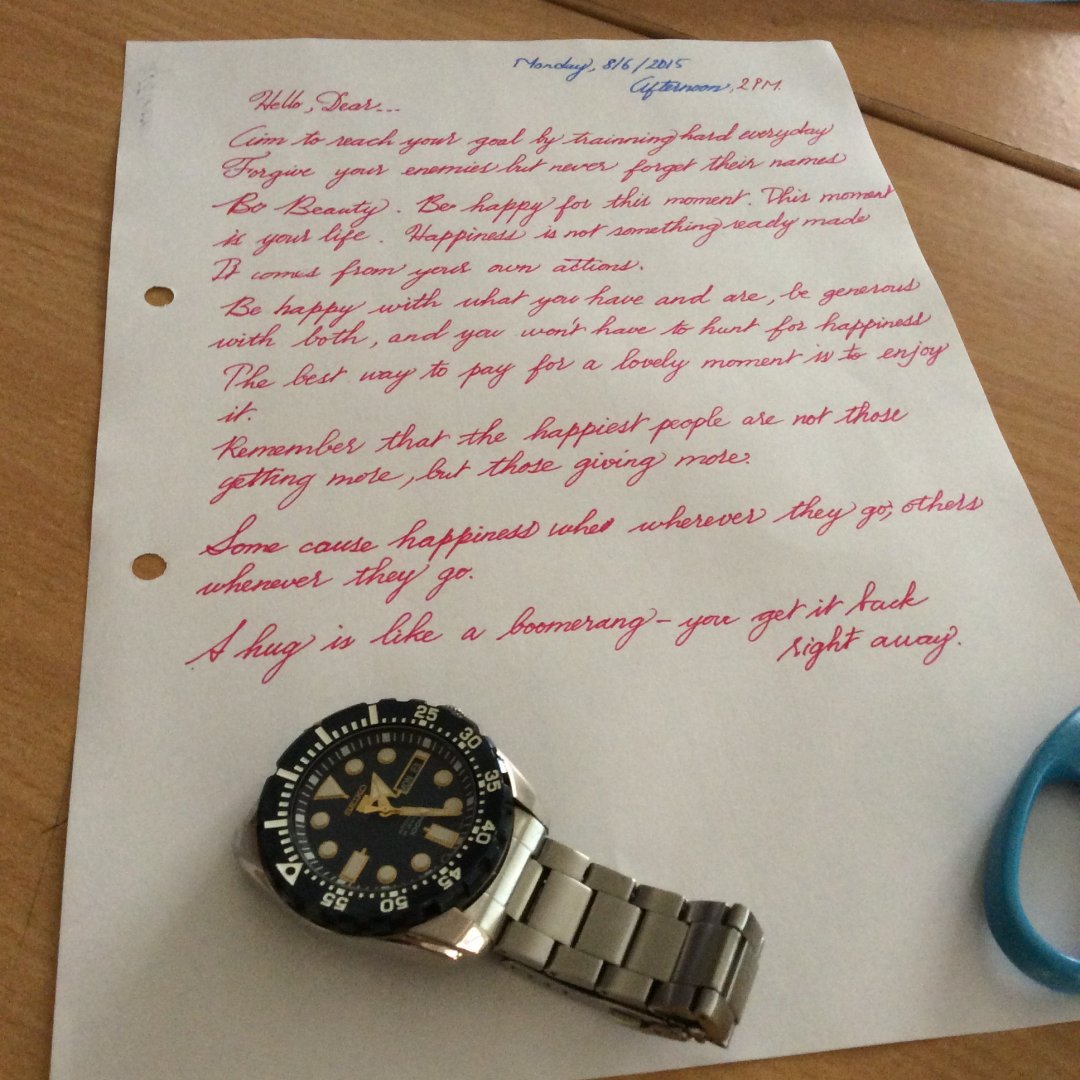 Monday, 8/6/2015
Afternoon, 2 PM.
Hello, Dear...
Aim to reach your goal by trainning hard everyday
Forgive your enemies but never forget their names
Be Beauty. Be happy for this moment. This moment
is your life. Happiness is not something ready made
It comes from your own actions.
Be happy with what you have and are, be generous
with both, and you won't have to hunt for happiness
The best way to pay for a lovely moment is to enjoy
it.
Remember that the happiest people are not those
getting more, but those giving more.
Some cause happiness whe wherever they go; others
whenever they go.
A hug is like a boomerang - you get it back
right away.
25
30
35
40
45
50
55
SEIKO